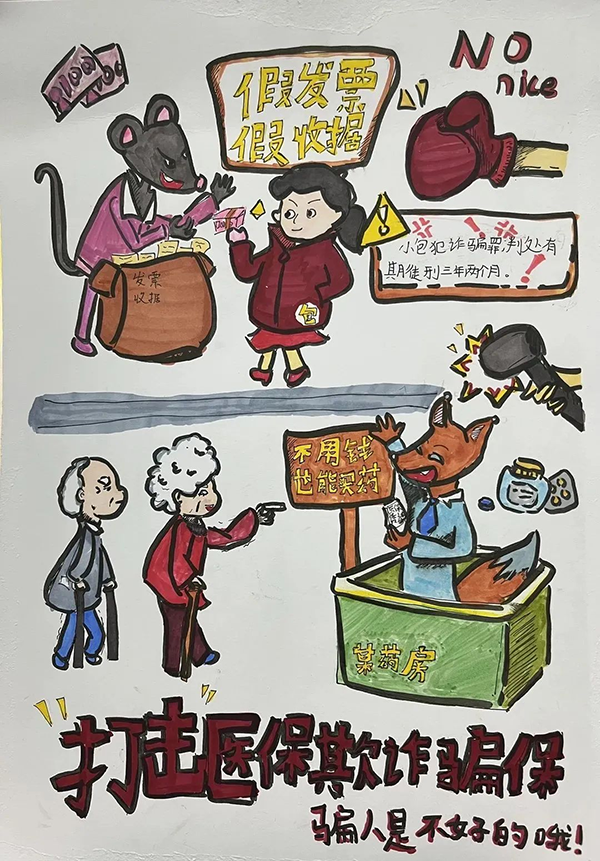 NO
nice
假发票
假收据
小包犯诈骗罪判处有
期徒刑三年两个月。
发票
收据
包
不用钱
也能买药
某药房
打击医保欺诈骗保
骗人是不好的哦!